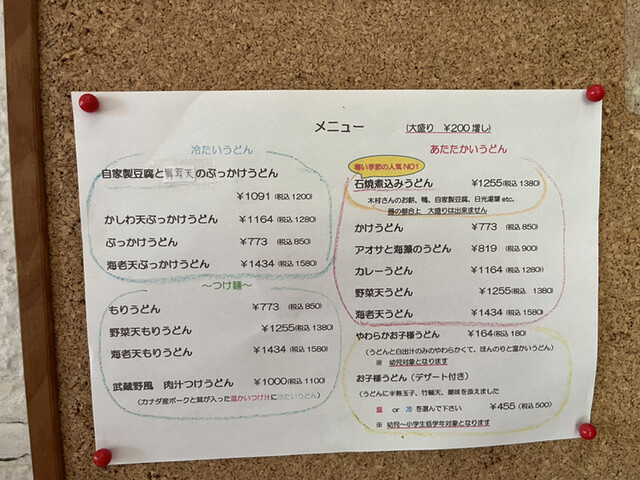 メニュー
(大盛り ¥200増し)
冷たいうどん
自家製豆腐と のぶっかけうどん
¥1091 (税込 1200)
かしわ天ぶっかけうどん ¥1164 (税込 1280)
ぶっかけうどん ¥773 (税込 850)
海老天ぶっかけうどん ¥1434 (税込 1580)
～つけ麺～
もりうどん ¥773 (税込 850)
野菜天もりうどん ¥1255 (税込 1380)
海老天もりうどん ¥1434 (税込 1580)
武蔵野風 肉汁つけうどん ¥1000 (税込 1100)
(カナダ産ポークと葱が入った温かいつけ汁に冷たいうどん)
あたたかいうどん
寒い季節の人気NO1
石焼煮込みうどん ¥1255 (税込 1380)
木村さんのお餅、鴨、自家製豆腐、日光湯葉 etc.
器の都合上 大盛りは出来ません
かけうどん ¥773 (税込 850)
アオサと海藻のうどん ¥819 (税込 900)
カレーうどん ¥1164 (税込 1280)
野菜天うどん ¥1255 (税込 1380)
海老天うどん ¥1434 (税込 1580)
やわらかお子様うどん ¥164 (税込 180)
(うどんと白出汁のみのやわらかくて、ほんのりと温かいうどん)
※ 幼児対象となります
お子様うどん (デザート付き)
(うどんに半熟玉子、竹輪天、薬味を添えました
温 or 冷 を選んで下さい ¥455 (税込 500)
※ 幼児～小学生低学年対象となります